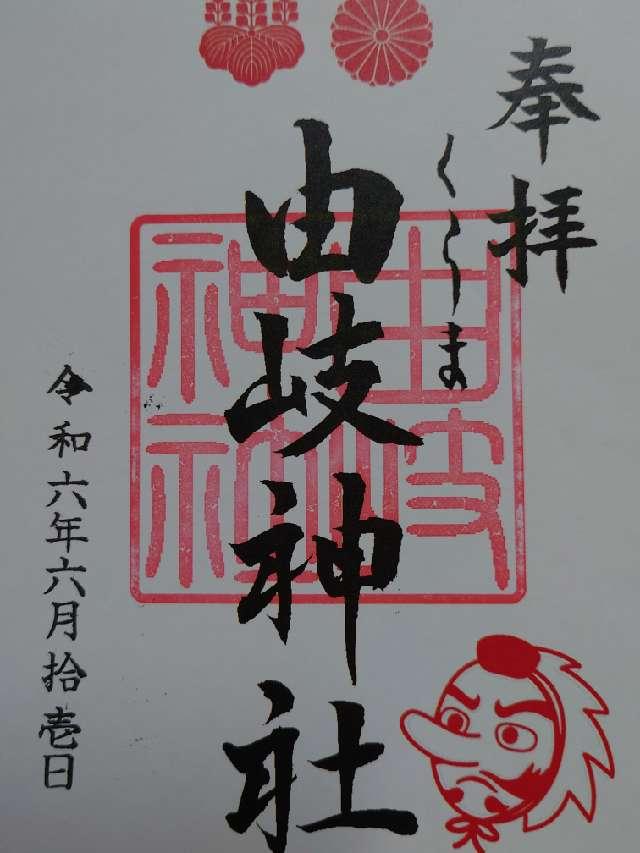 奉拝
くらま
由岐神社
由岐神社
令和六年六月拾壱日